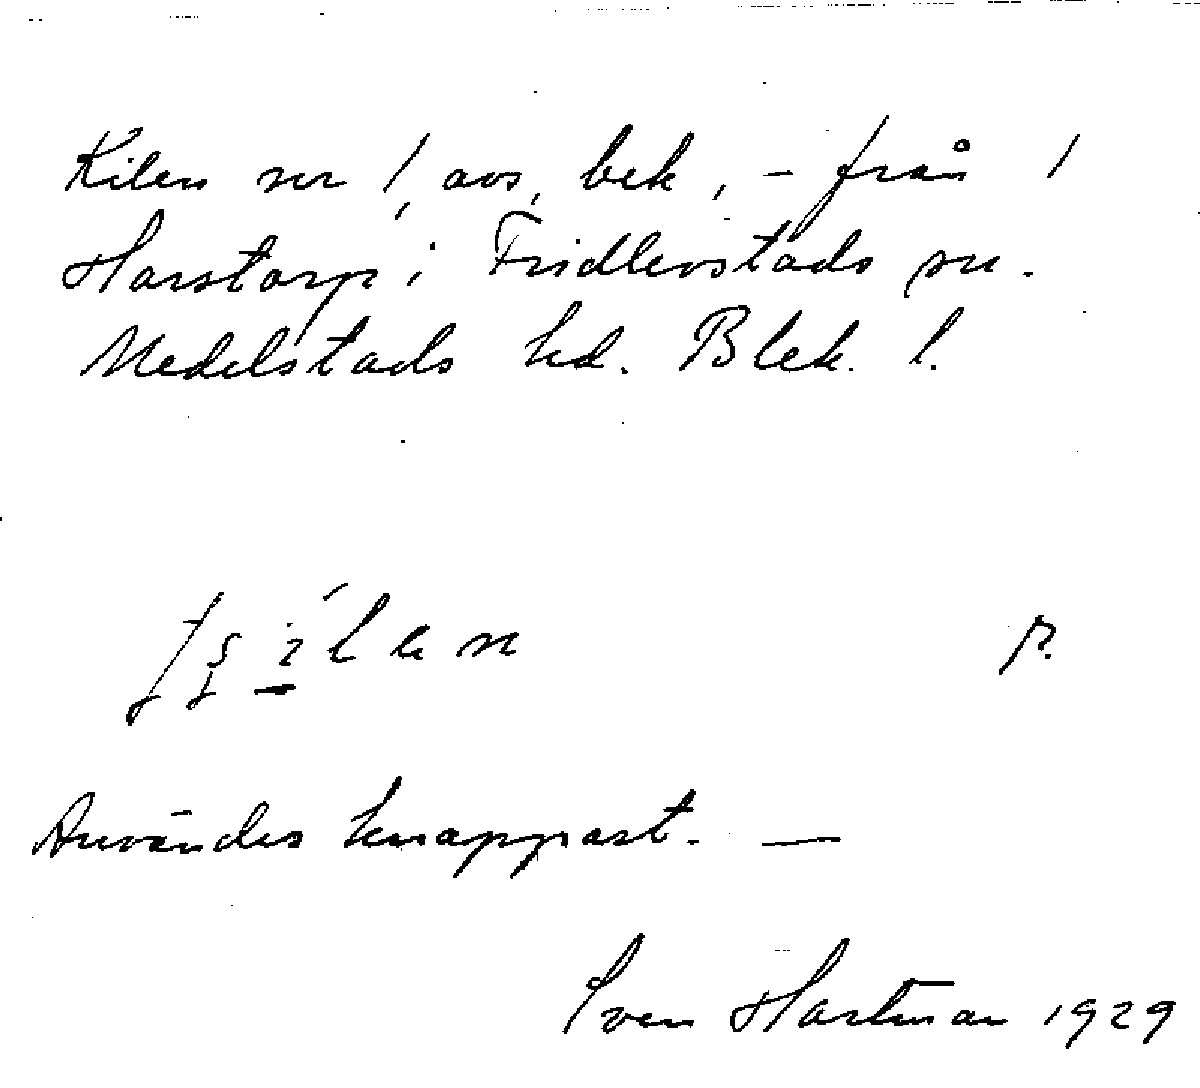 Kilen nr 1, avs, bek, - från 1
Harstorp i Fridlevstads sn.
Medelstads hd. Blek. l.
p.
Användes knappast. —
Sven Hartman 1929